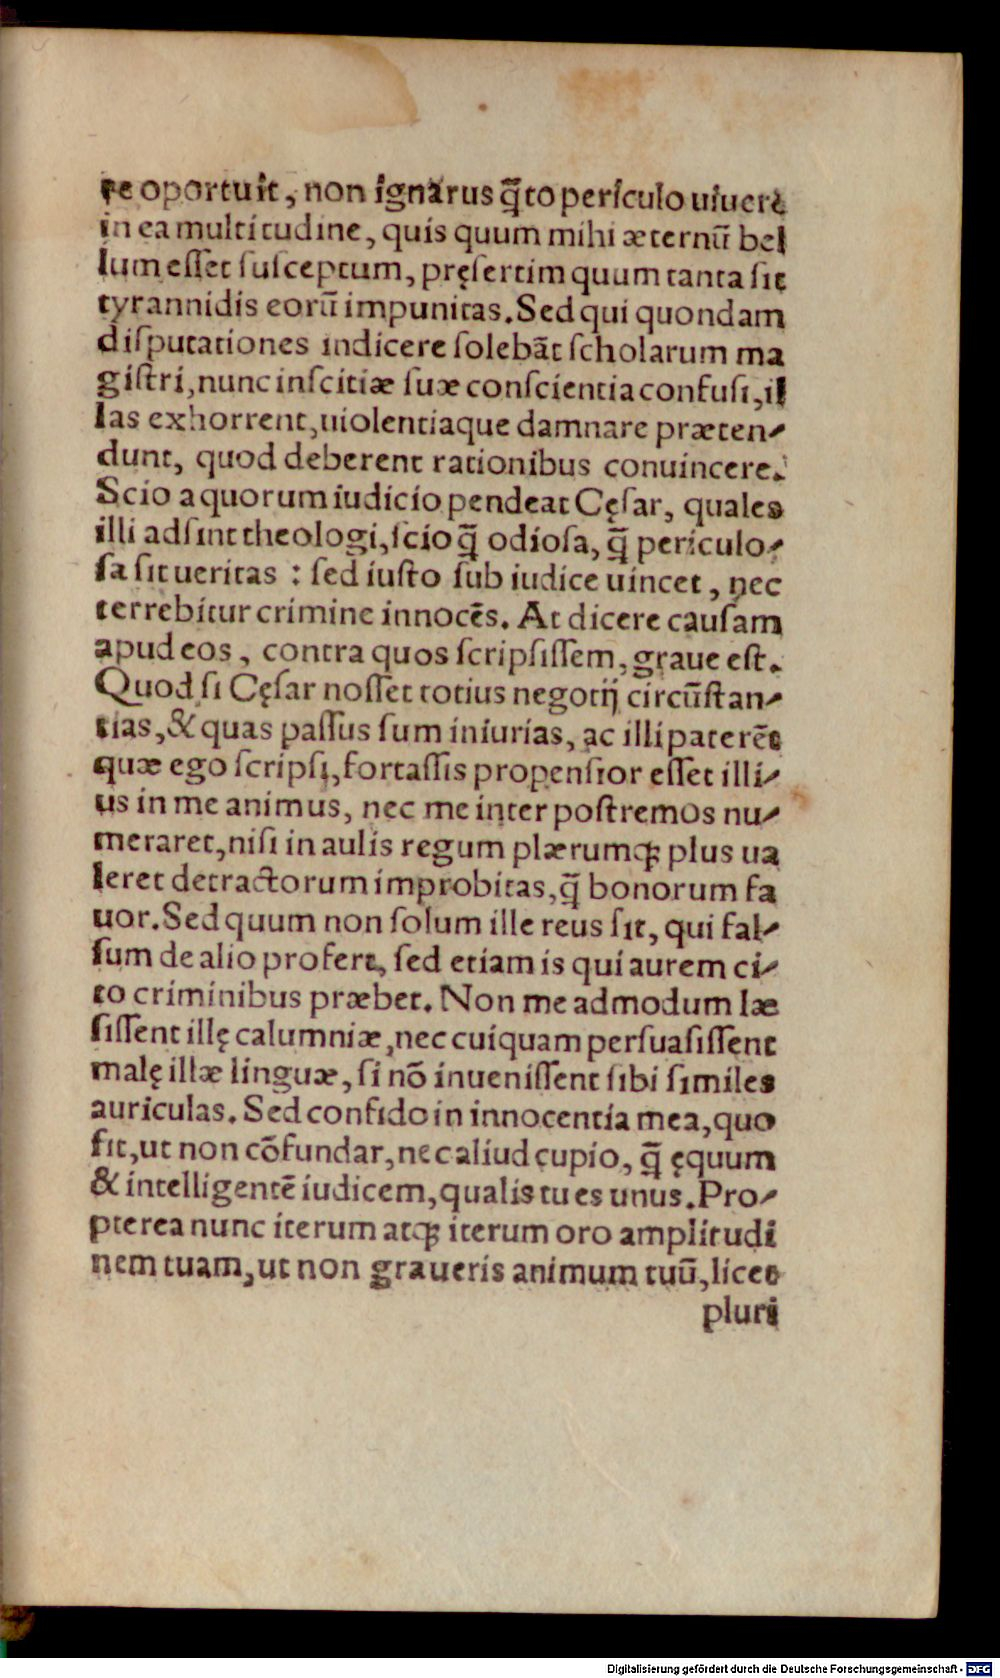 re oportuit, non ignarus q̃to periculo uiuere
in ea multitudine, quis quum mihi æternũ bel
lum esset susceptum, pręsertim quum tanta sit
tyrannidis eorũ impunitas. Sed qui quondam
disputationes indicere solebãt scholarum ma
gistri, nunc inscitiæ suæ conscientia confusi, il
las exhorrent, uiolentiaque damnare præten-
dunt, quod deberent rationibus conuincere.
Scio a quorum iudicio pendeat Cęsar, quales
illi adsint theologi, scio q̃ odiosa, q̃ periculo-
sa sit ueritas : sed iusto sub iudice uincet, nec
terrebitur crimine innocẽs. At dicere causam
apud eos, contra quos scripsissem, graue est.
Quod si Cęsar nosset totius negotij circũstan-
tias, & quas passus sum iniurias, ac illi paterẽt
quæ ego scripsi, fortassis propensior esset illi-
us in me animus, nec me inter postremos nu-
meraret, nisi in aulis regum plærumqꝫ plus ua
leret detractorum improbitas, q̃ bonorum fa
uor. Sed quum non solum ille reus sit, qui fal-
sum de alio profert, sed etiam is qui aurem ci-
to criminibus præbet. Non me admodum læ
sissent illę calumniæ, nec cuiquam persuasissent
malę illæ linguæ, si nõ inuenissent sibi similes
auriculas. Sed confido in innocentia mea, quo
fit, ut non cõfundar, nec aliud cupio, q̃ ęquum
& intelligentẽ iudicem, qualis tu es unus. Pro-
pterea nunc iterum atqꝫ iterum oro amplitudi
nem tuam, ut non graueris animum tuũ, licet
pluri
Digitalisierung gefördert durch die Deutsche Forschungsgemeinschaft - DFG